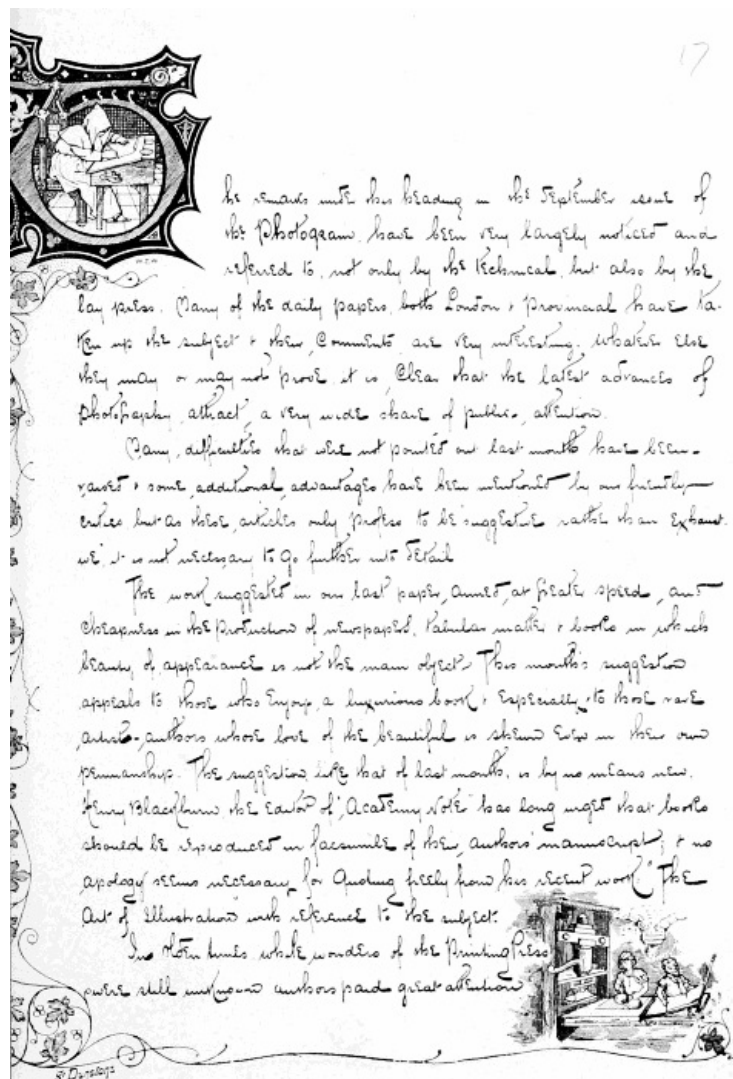 17
The remarks under this heading in the September issue of
the Photogram, have been very largely noticed and
referred to, not only by the technical, but also by the
lay press. Many of the daily papers, both London & Provincial have ta-
ken up the subject & their, Comments are very interesting. Whatever else
they may or may not prove it is, Clear that the latest advances of
Photography, attract, a very wide share of public, attention.
Many, difficulties that were not pointed out last month have been
raised & some, additional, advantages have been mentioned by our friendly
critics, but as these, articles only Profess to be suggestive rather than Exhaust
ive, it is not necessary to Go further into detail
The work suggested in our last paper, aimed, at Greater speed, and
Cheapness in the Production of newspapers, tabular matter & books in which
beauty, of, appearance is not the main object. This month's suggestion
appeals to those who Enjoy, a luxurious book & Especially to those rare
artist-authors whose love of the beautiful is shewn Even in their own
penmanship. The suggestion, like that of last month, is by no means new.
Henry Blackburn, the Editor of "Academy Notes" has long urged that books
should be reproduced in facsimile of their, authors' manuscript; & no
apology seems necessary, for Quoting freely from his recent work, "The
Art of Illustration" with reference to the subject.
In olden times, while wonders of the Printing Press
were still unknown authors paid great attention